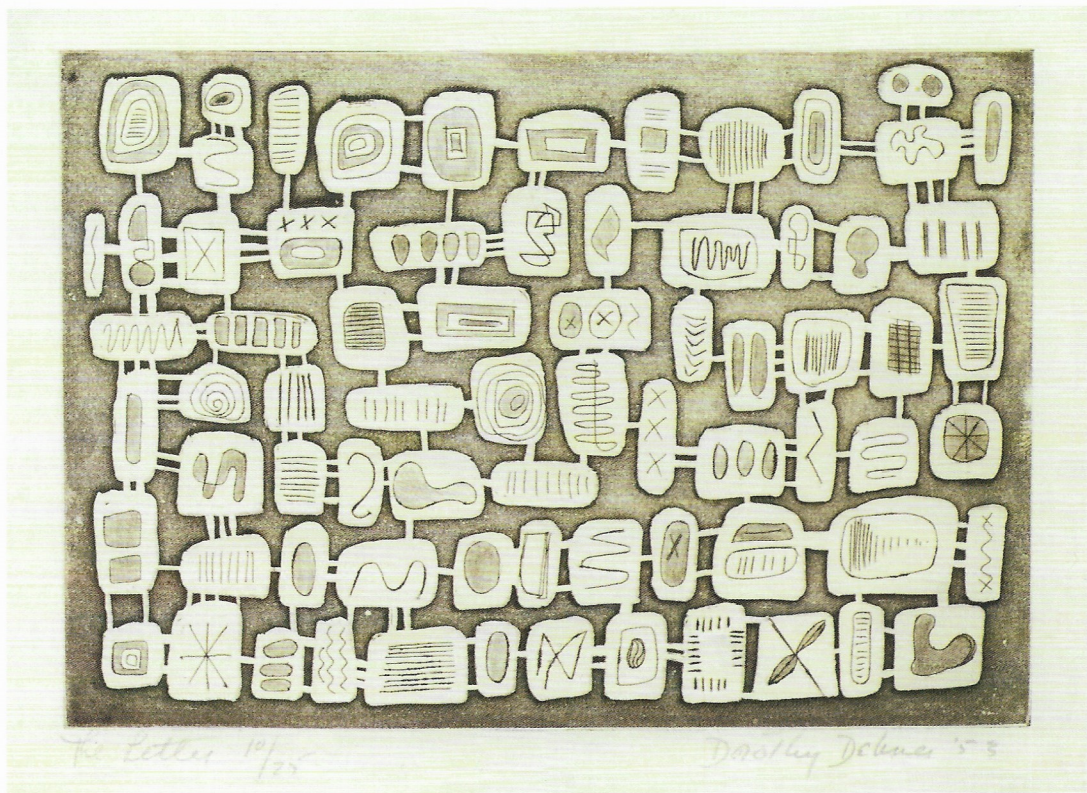 The Letter 10/25
Dorothy Dehner '53